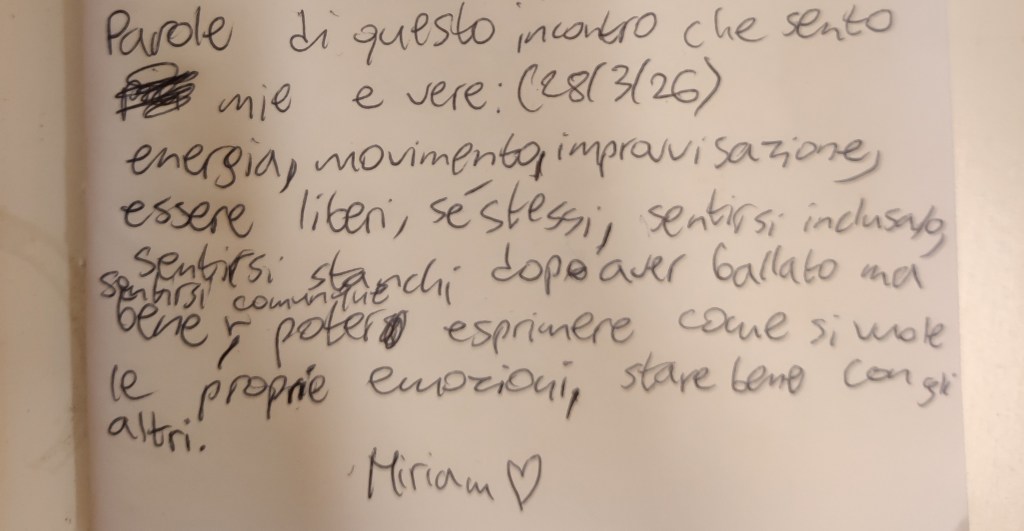 Parole di questo incontro che sento
mie e vere: (28/3/26)
energia, movimento, improvvisazione,
essere liberi, sé stessi, sentirsi inclusa/o,
sentirsi stanchi dopo aver ballato ma
sentirsi comunque
bene, poter esprimere come si vuole
le proprie emozioni, stare bene con gli
altri.
Miriam ♡